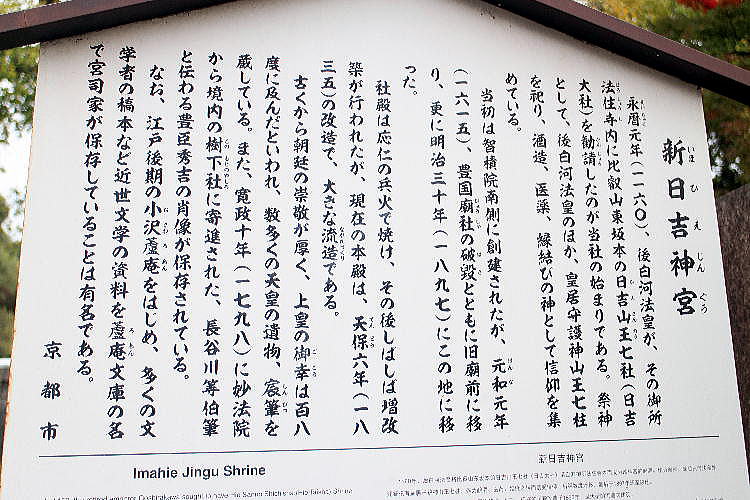 新日吉神宮
いまひえじんぐう
永暦元年（一一六〇）、後白河法皇が、その御所
法住寺内に比叡山東坂本の日吉山王七社（日吉
大社）を勧請したのが当社の始まりである。祭神
として、後白河法皇のほか、皇居守護神山王七柱
を祀り、酒造、医薬、縁結びの神として信仰を集
めている。
当初は智積院南側に創建されたが、元和元年
（一六一五）、豊国廟社の破毀とともに旧廟前に移
り、更に明治三十年（一八九七）にこの地に移
った。
社殿は応仁の兵火で焼け、その後しばしば増改
築が行われたが、現在の本殿は、天保六年（一八
三五）の改造で、大きな流造である。
古くから朝廷の崇敬が厚く、上皇の御幸は百八
度に及んだといわれ、数多くの天皇の遺物、宸筆を
蔵している。また、寛政十年（一七九八）に妙法院
から境内の樹下社に寄進された、長谷川等伯筆
と伝わる豊臣秀吉の肖像が保存されている。
なお、江戸後期の小沢蘆庵をはじめ、多くの文
学者の稿本など近世文学の資料を蘆庵文庫の名
で宮司家が保存していることは有名である。
京都市
Imahie Jingu Shrine
新日吉神宮